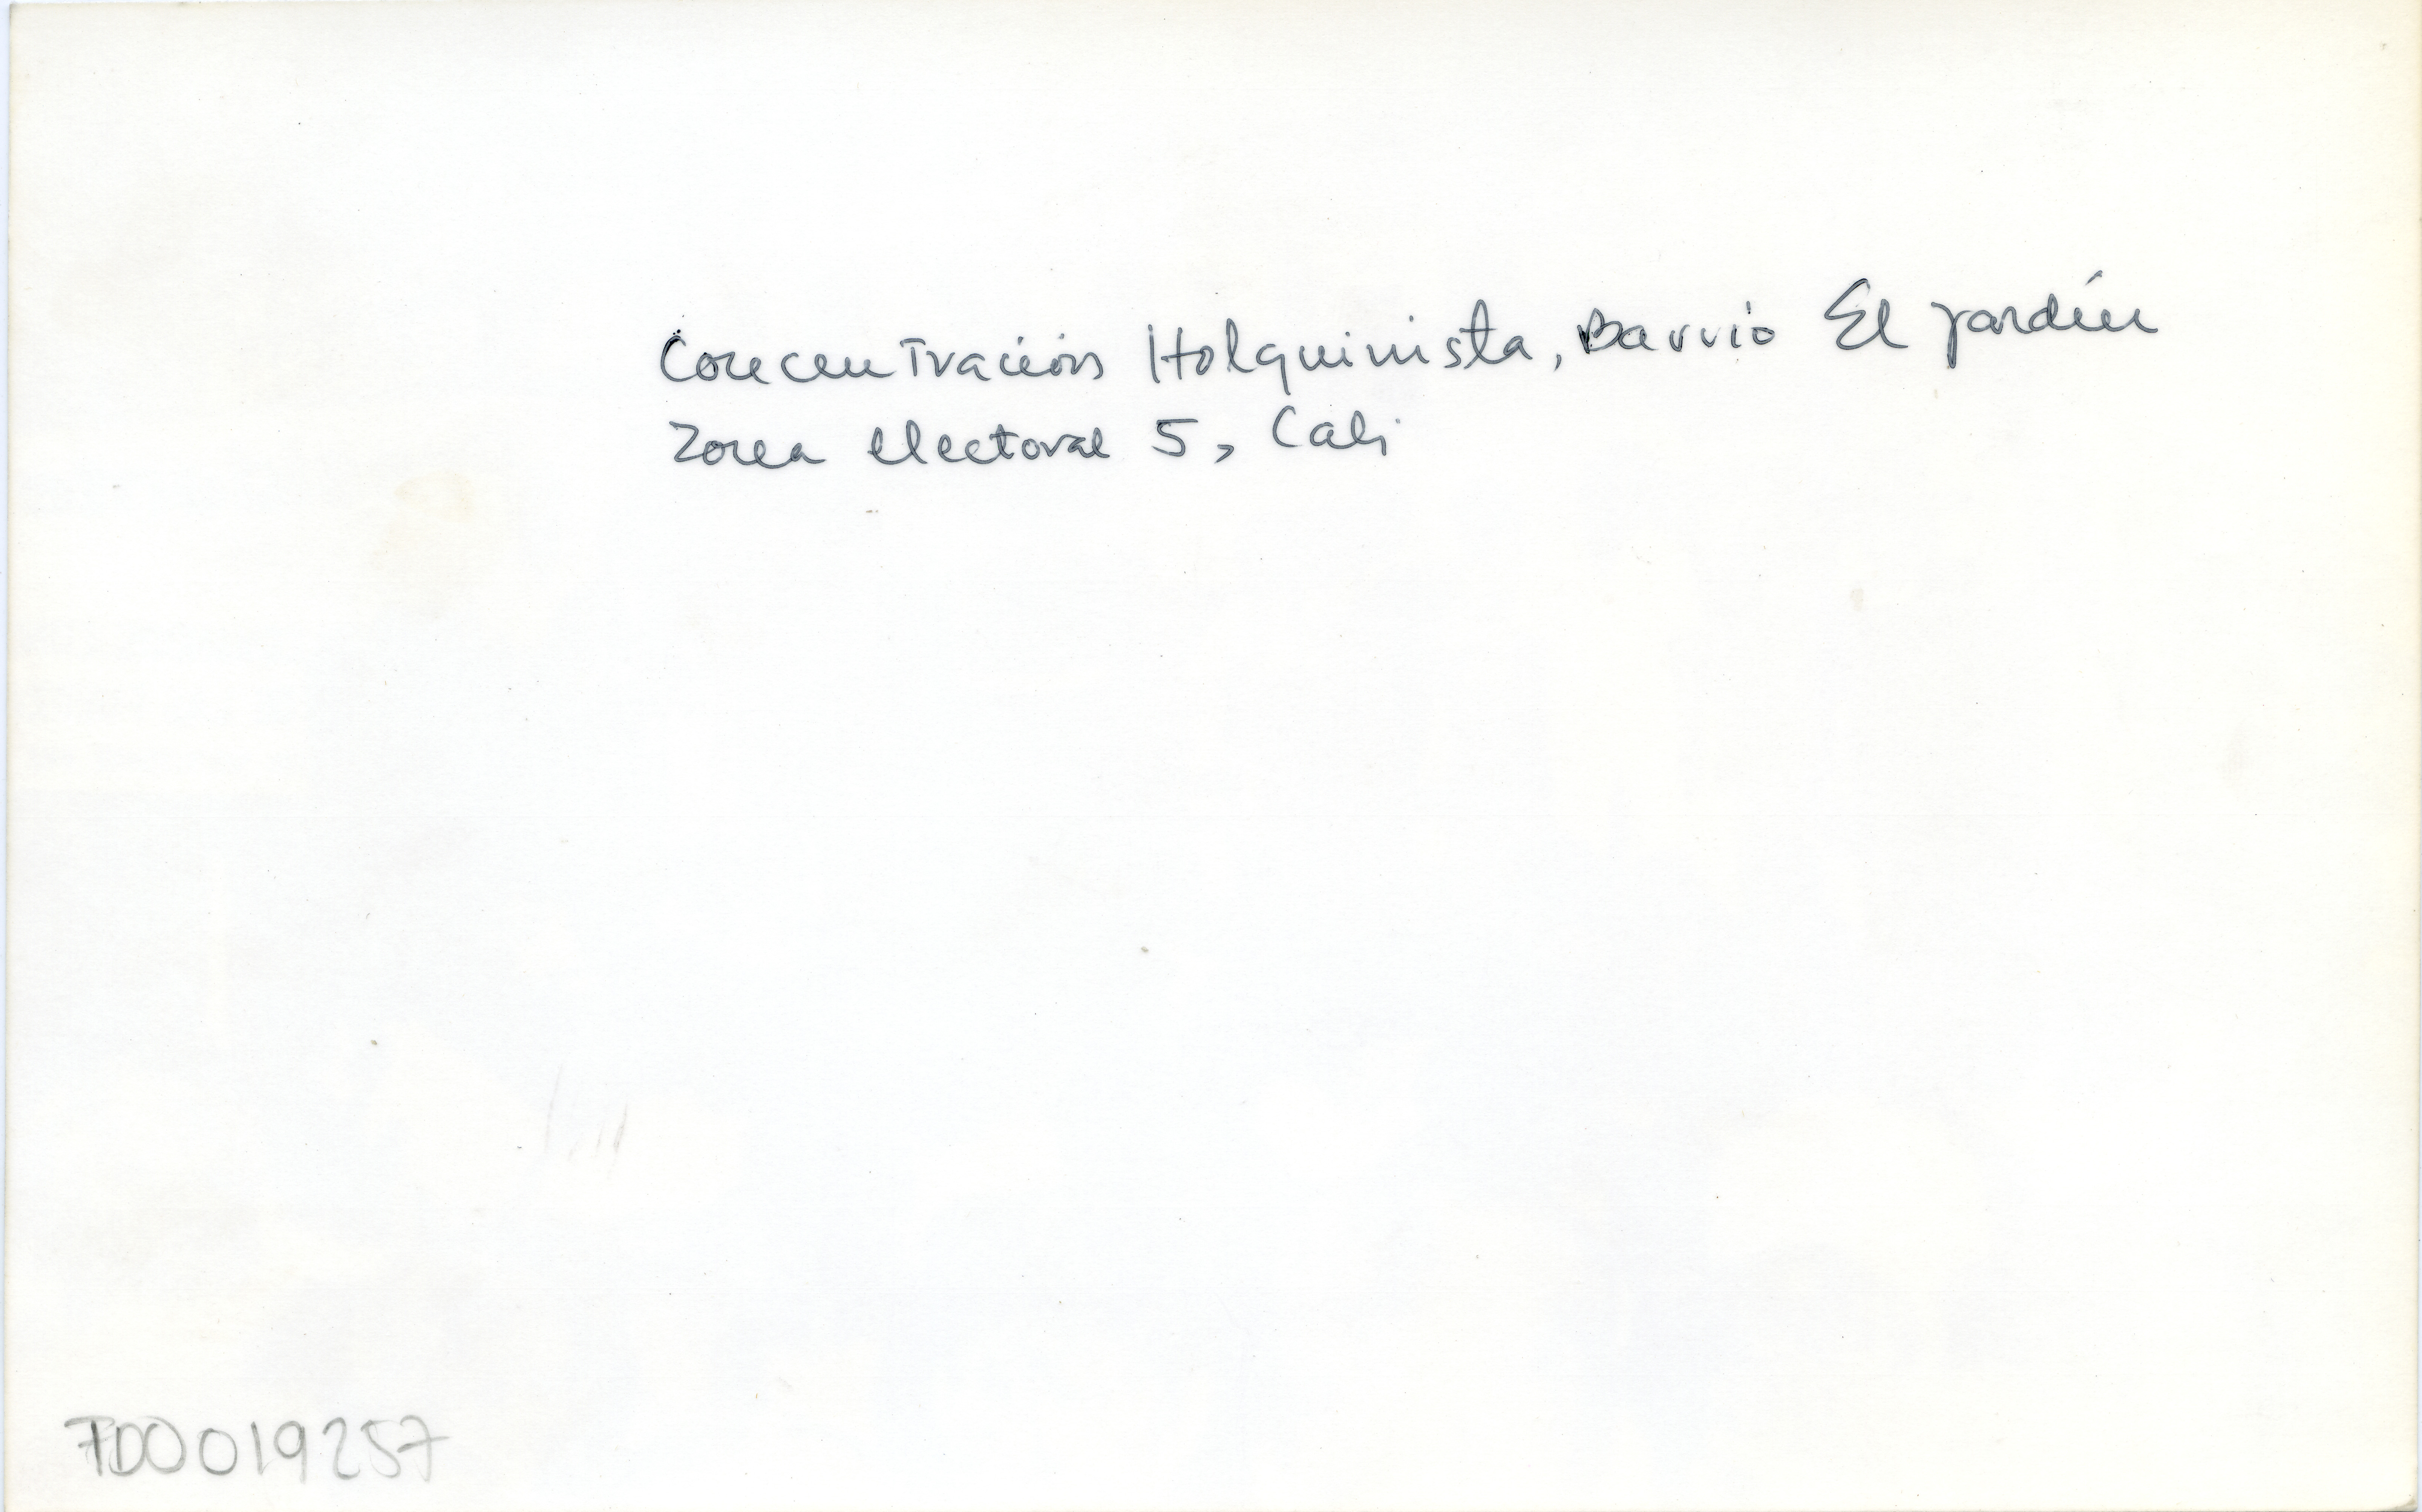 Concentración Holguinista, Barrio El Jardín
Zona electoral 5, Cali
FD0019257